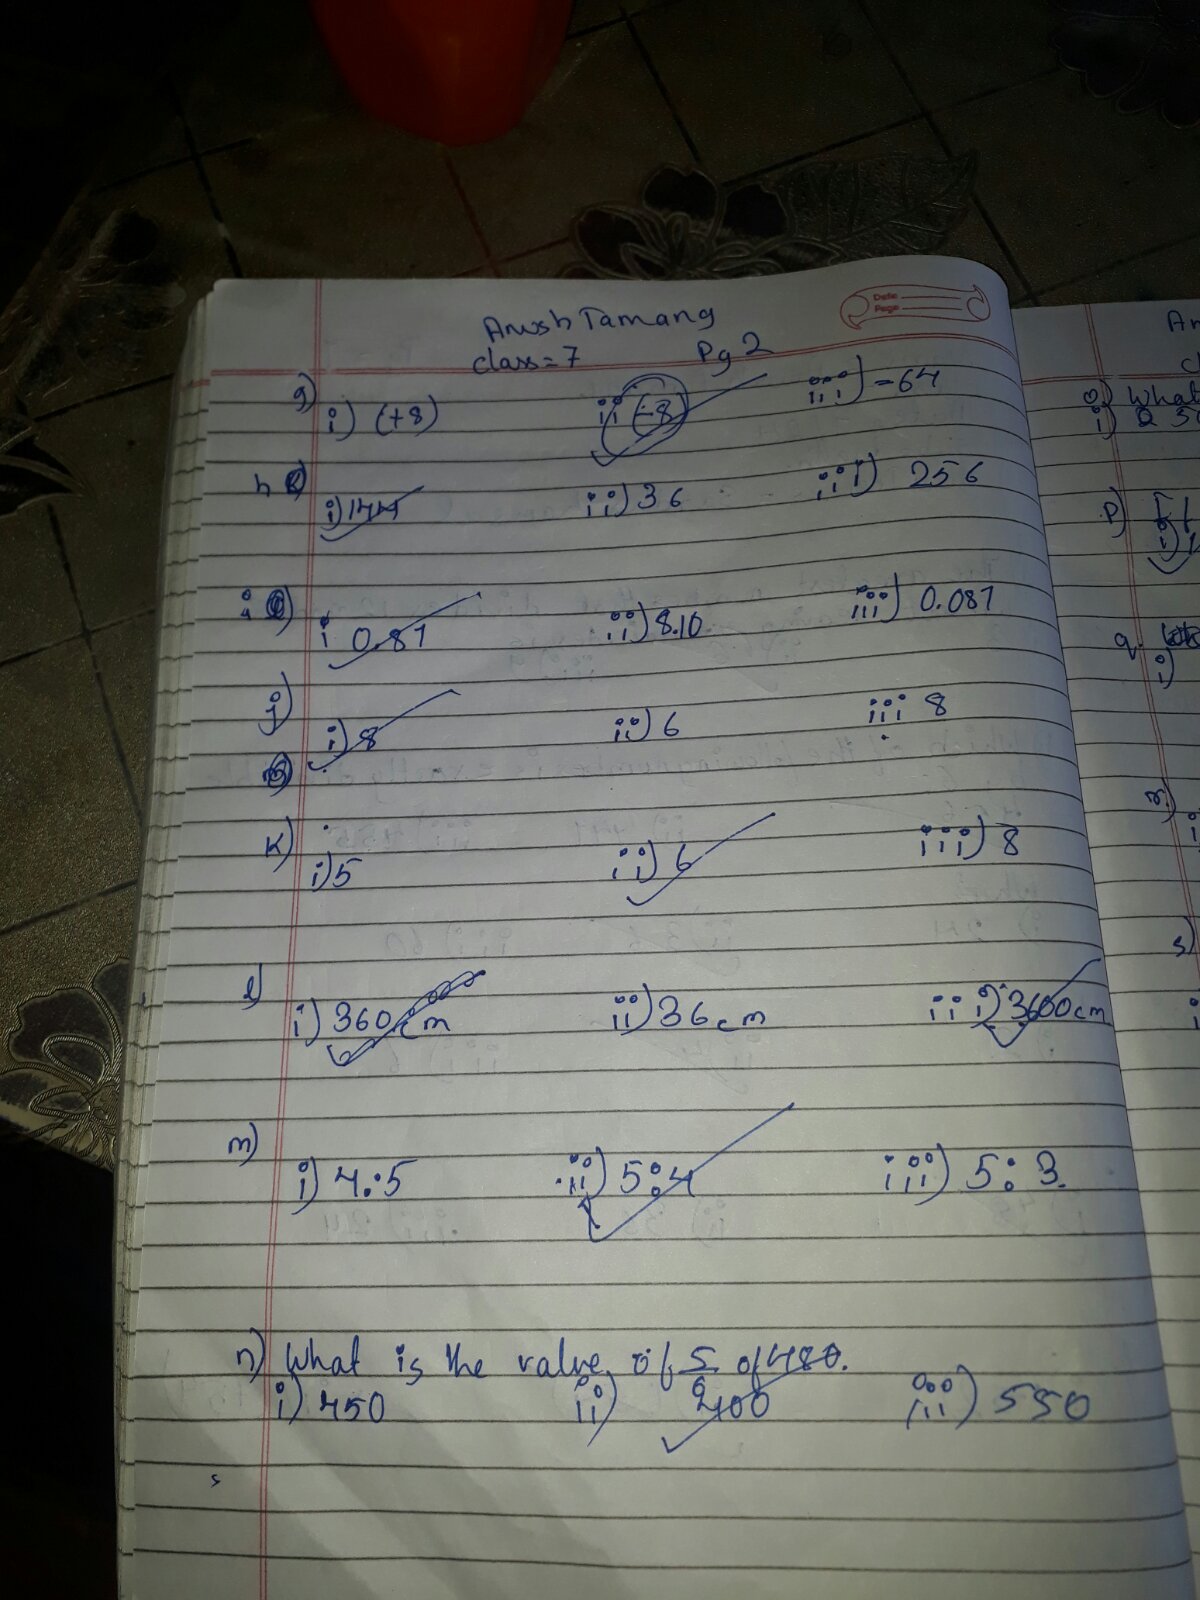 Date
Page
Anush Tamang
class=7 Pg 2
g) i) (+8) ii (-8) iii) -64
h i) 144 ii) 36 iii) 256
i i 0.81 ii) 8.10 iii) 0.081
j) i) 8 ii) 6 iii 8
k) i) 5 ii) 6 iii) 8
l) i) 360cm ii) 36cm iii) 3600cm
m) i) 4:5 ii) 5:4 iii) 5:3
n) What is the value of 5/6 of 480.
i) 450 ii) 400 iii) 550
o) What
i)
p)
i)
q.
i)
r.)
s)